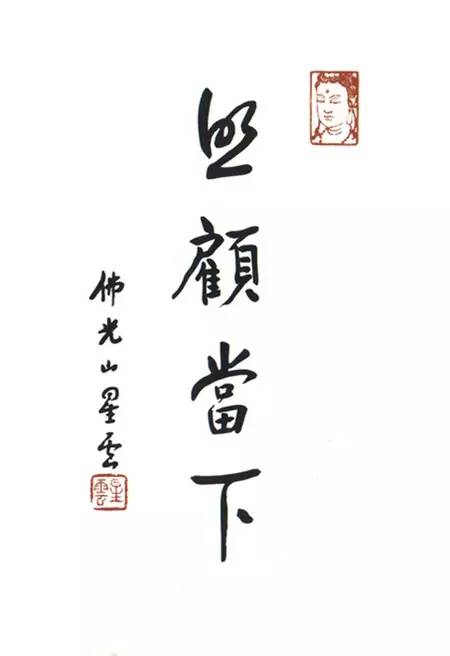 照顧當下
佛光山星雲
星雲